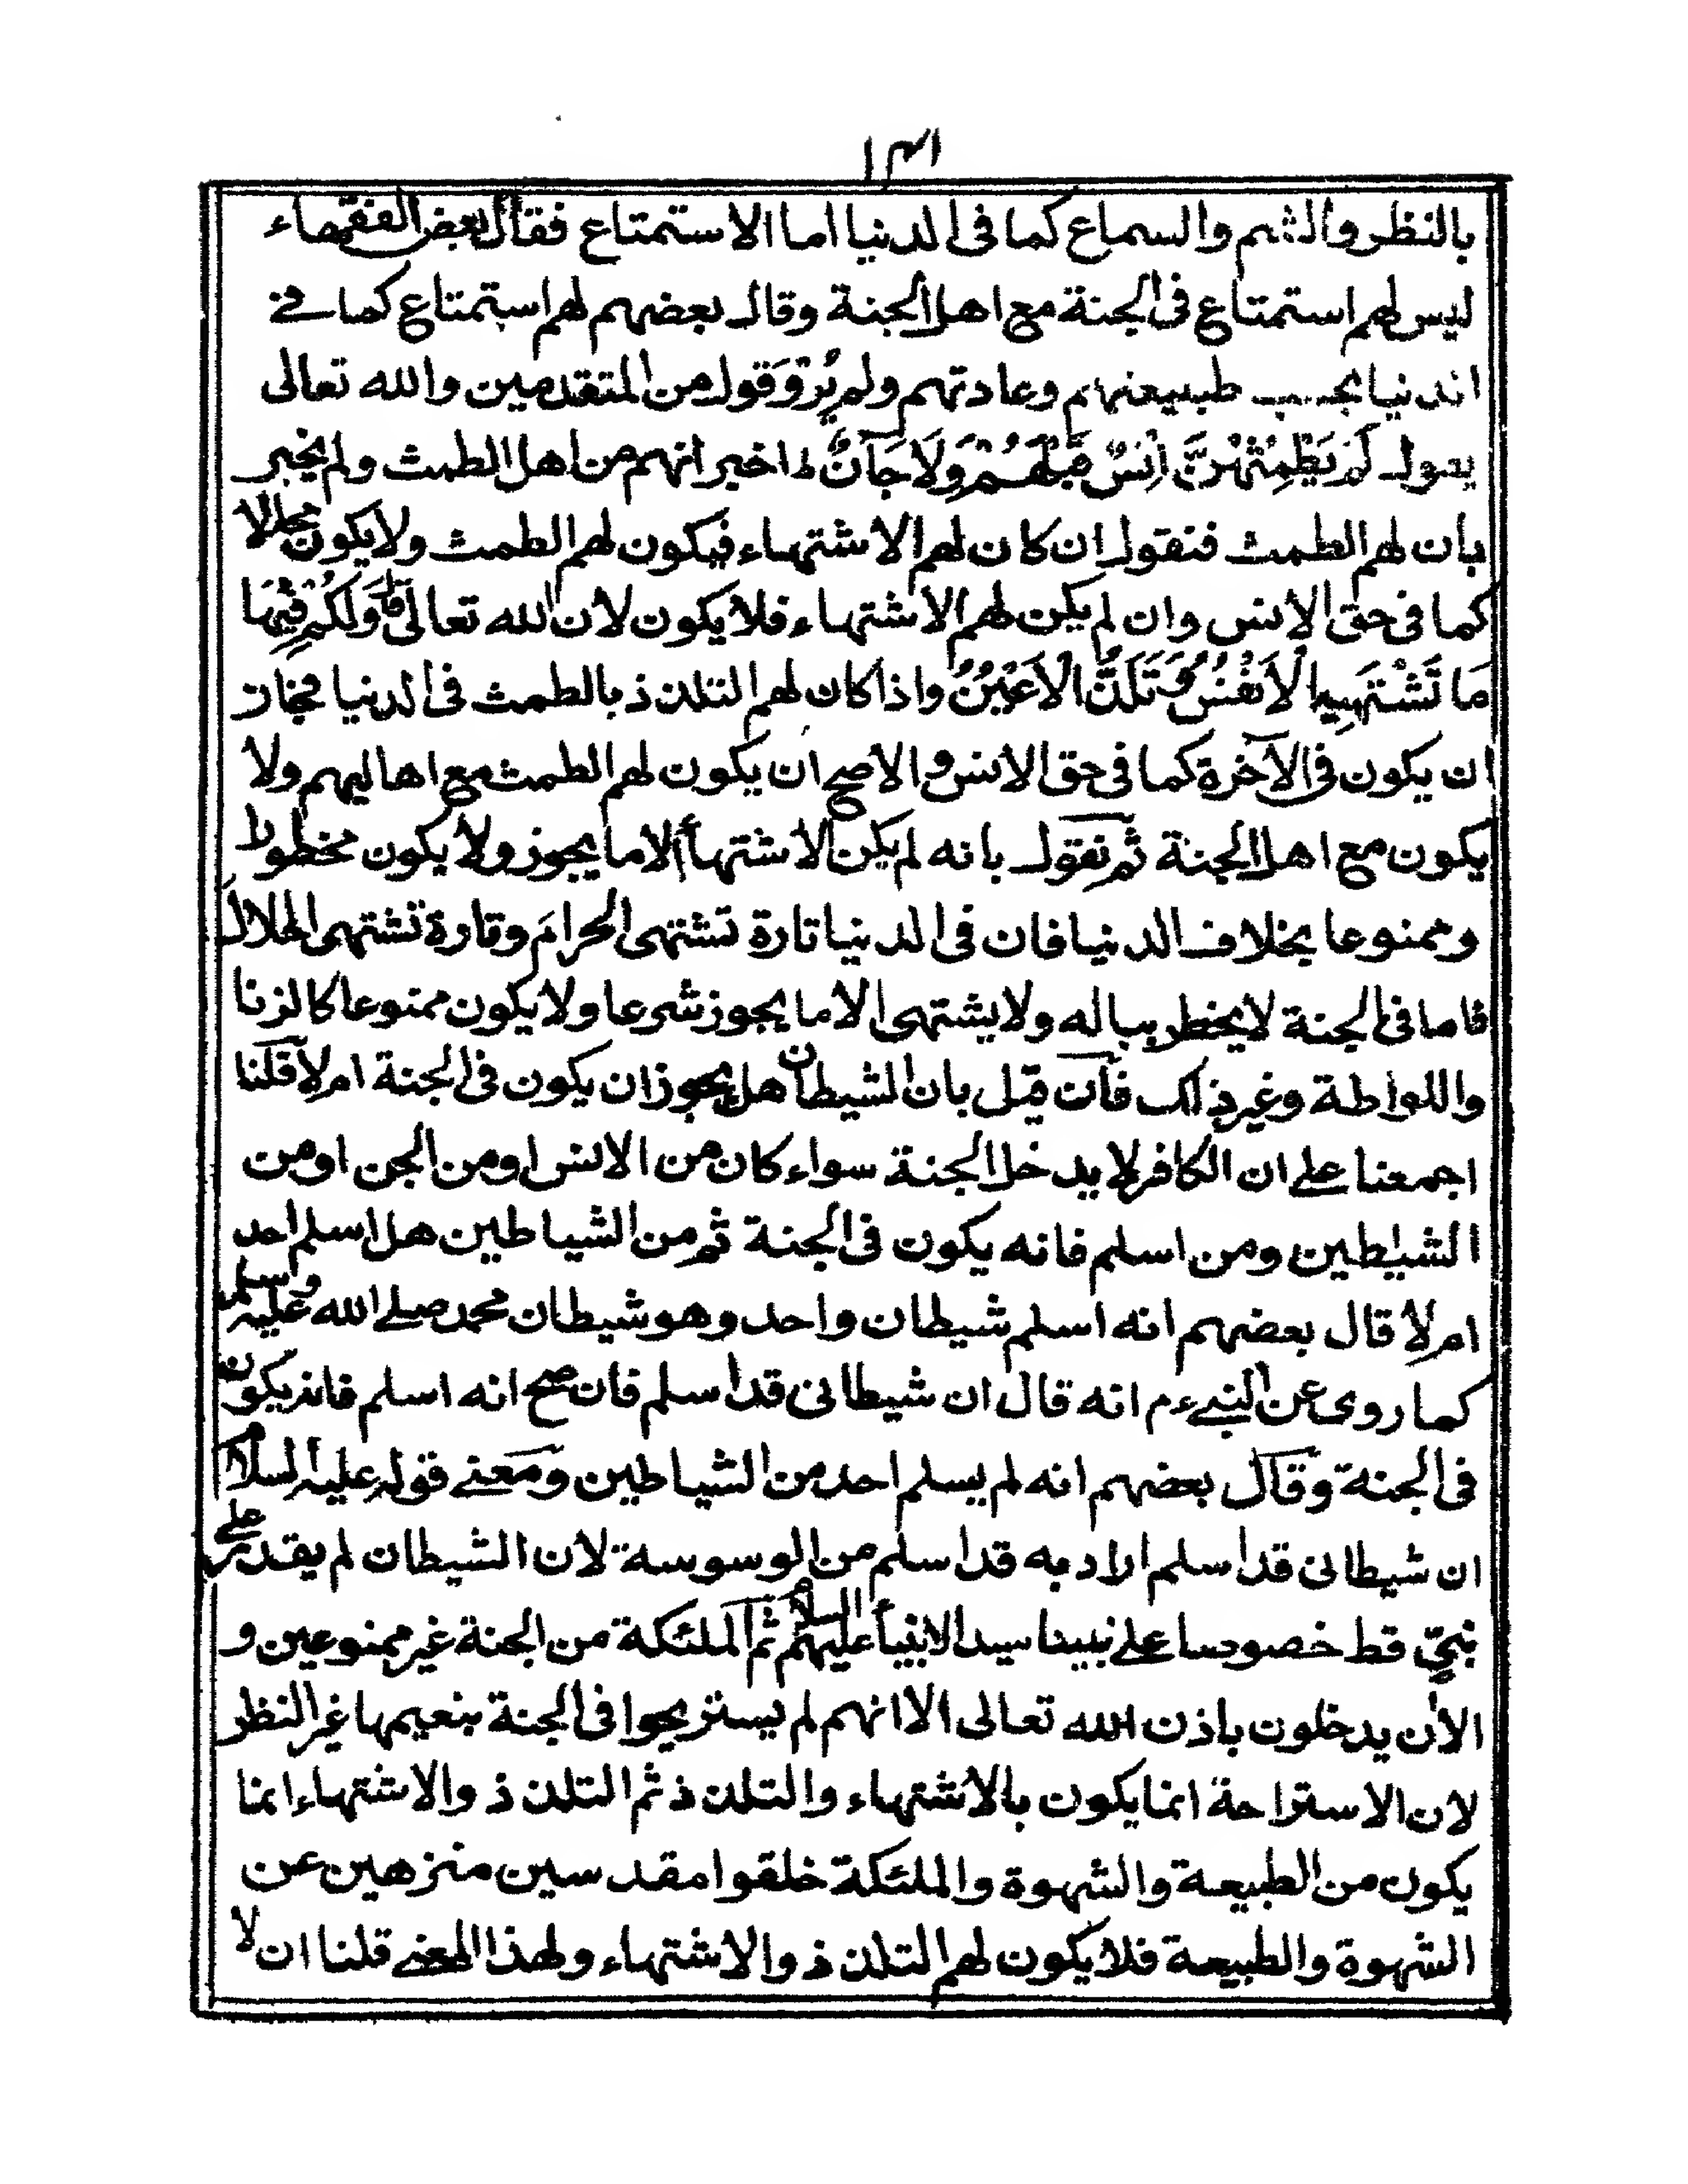 بالنظر والشم والسماع كما فى الدنيا اما الاستمتاع فقال بعض الفقهاء
ليس لهم استمتاع فى الجنة مع اهل الجنة وقال بعضهم لهم استمتاع كما فے
الدنيا بحسب طبيعتهم وعادتهم ولم يُرْوَ قول من المتقدمين والله تعالى
يقول لَمْ يَطْمِثْهُنَّ اِنْسٌ قَبْلَهُمْ وَلَا جَآنٌّ اخبر انهم من اهل الطمث ولم يخبر
بان لهم الطمث فنقول ان كان لهم الاشتهاء فيكون لهم الطمث ولا يكون محالا
كما فى حق الانس وان لم يكن لهم الاشتهاء فلا يكون لان الله تعالى قال وَلَكُمْ فِيْهَا
مَا تَشْتَهِيهِ الْاَنْفُسُ وَتَلَذُّ الْاَعْيُنُ واذا كان لهم التلذذ بالطمث فى الدنيا فجاز
ان يكون فى الآخرة كما فى حق الانس والاصح ان يكون لهم الطمث مع اهاليهم ولا
يكون مع اهل الجنة ثم نقول بانه لم يكن الاشتهاأ الا ما يجوز ولا يكون مخطورا
وممنوعا بخلاف الدنيا فان فى الدنيا تارة تشتهى الحرامَ وتارة تشتهى الحلالَ
فاما فى الجنة لا يخطر بباله ولا يشتهى الا ما يجوز شرعا ولا يكون ممنوعا كالزنا
واللواطة وغير ذلك فان قيل بان الشيطان هل يجوز ان يكون فى الجنة ام لا قلنا
اجمعنا علے ان الكافر لا يدخل الجنة سواء كان من الانس او من الجن او من
الشيٰطين ومن اسلم فانه يكون فى الجنة ثم من الشياطين هل اسلم احد
ام لا قال بعضهم انه اسلم شيطان واحد وهو شيطان محمد صلے الله عليه وسلم
كما روى عن النبے ءم انه قال ان شيطانى قد اسلم فان صح انه اسلم فانه يكون
فى الجنة وقال بعضهم انه لم يسلم احد من الشياطين ومعنے قوله عليه السلام
ان شيطانى قد اسلم اراد به قد اسلم من الوسوسة لان الشيطان لم يقدر علے
نبىٍّ قط خصوصا علے نبينا سيد الانبيأ عليهم السلام ثم الملئكة من الجنة غير ممنوعين و
الاٰن يدخلون باذن الله تعالى الا انهم لم يستريحوا فى الجنة بنعيمها غير النظر
لان الاستراحة انما يكون بالاشتهاء والتلذذ ثم التلذذ والاشتهاء انما
يكون من الطبيعة والشهوة والملئكة خلقوا مقدسين منزهين عن
الشهوة والطبيعة فلا يكون لهم التلذذ والاشتهاء ولهذا المعنے قلنا ان لا